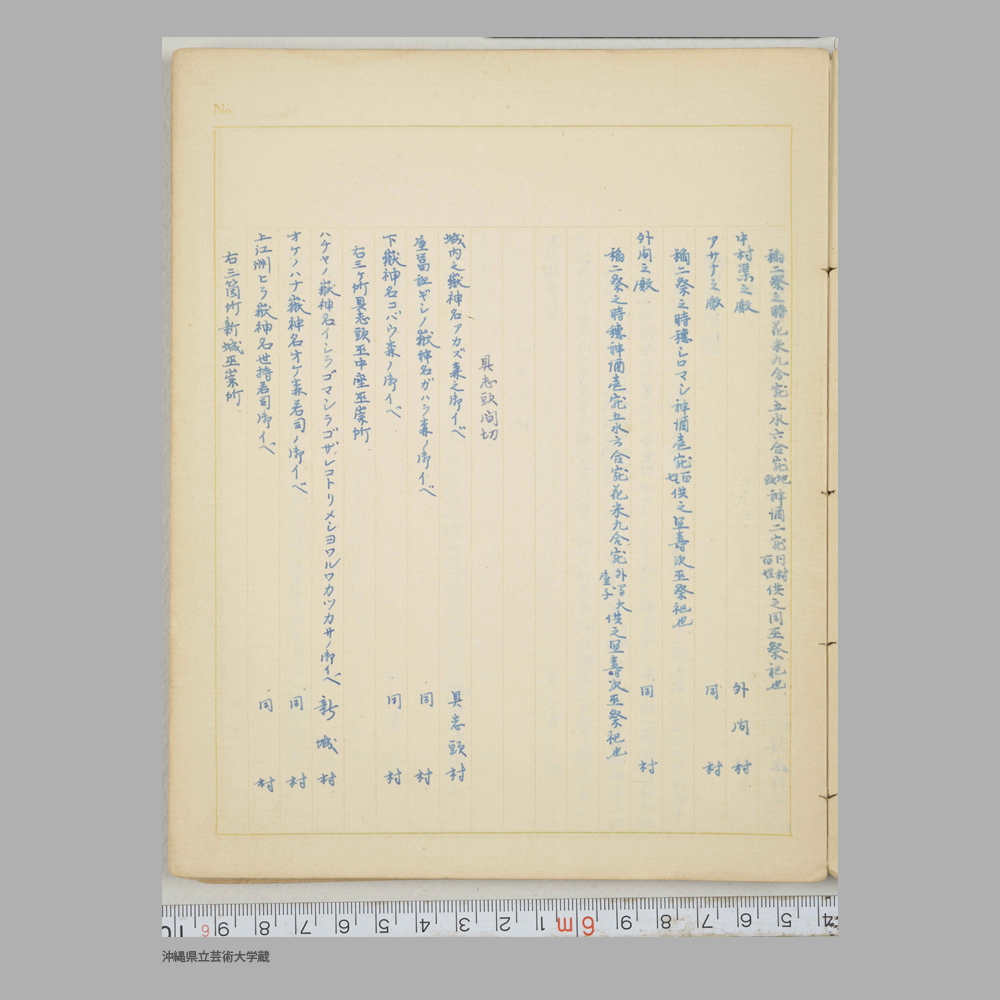 No.
稲二祭之時花米九合宛五水六合宛地頭神酒二宛同村百姓供之同巫祭祀也
中村渠之殿 外間村
アサナ之殿 同村
稲二祭之時穂シロマシ神酒壱宛百姓供之望壽次巫祭祀也
外間之殿 同村
稲二祭之時穂神酒壱宛五水六合宛花米九合宛外間大屋子供之望壽次巫祭祀也
具志頭間切
城内之嶽神名アカズ森之御イベ 具志頭村
屋冨祖ギシノ嶽神名ガハラ森ノ御イベ 同村
下嶽神名コバウ森ノ御イベ 同村
右三ヶ所具志頭巫中座巫崇所
ハチヤノ嶽神名イシラゴマシラゴザレコトリメシヨワルワカツカサノ御イベ 新城村
オケノハナ嶽神名オケ森若司ノ御イベ 同村
上江洲ヒラ嶽神名世持若司御イベ 同村
右三箇所新城巫崇所
10 9 8 7 6 5 4 3 2 1 6m 9 8 7 6 5 4
沖縄県立芸術大学蔵